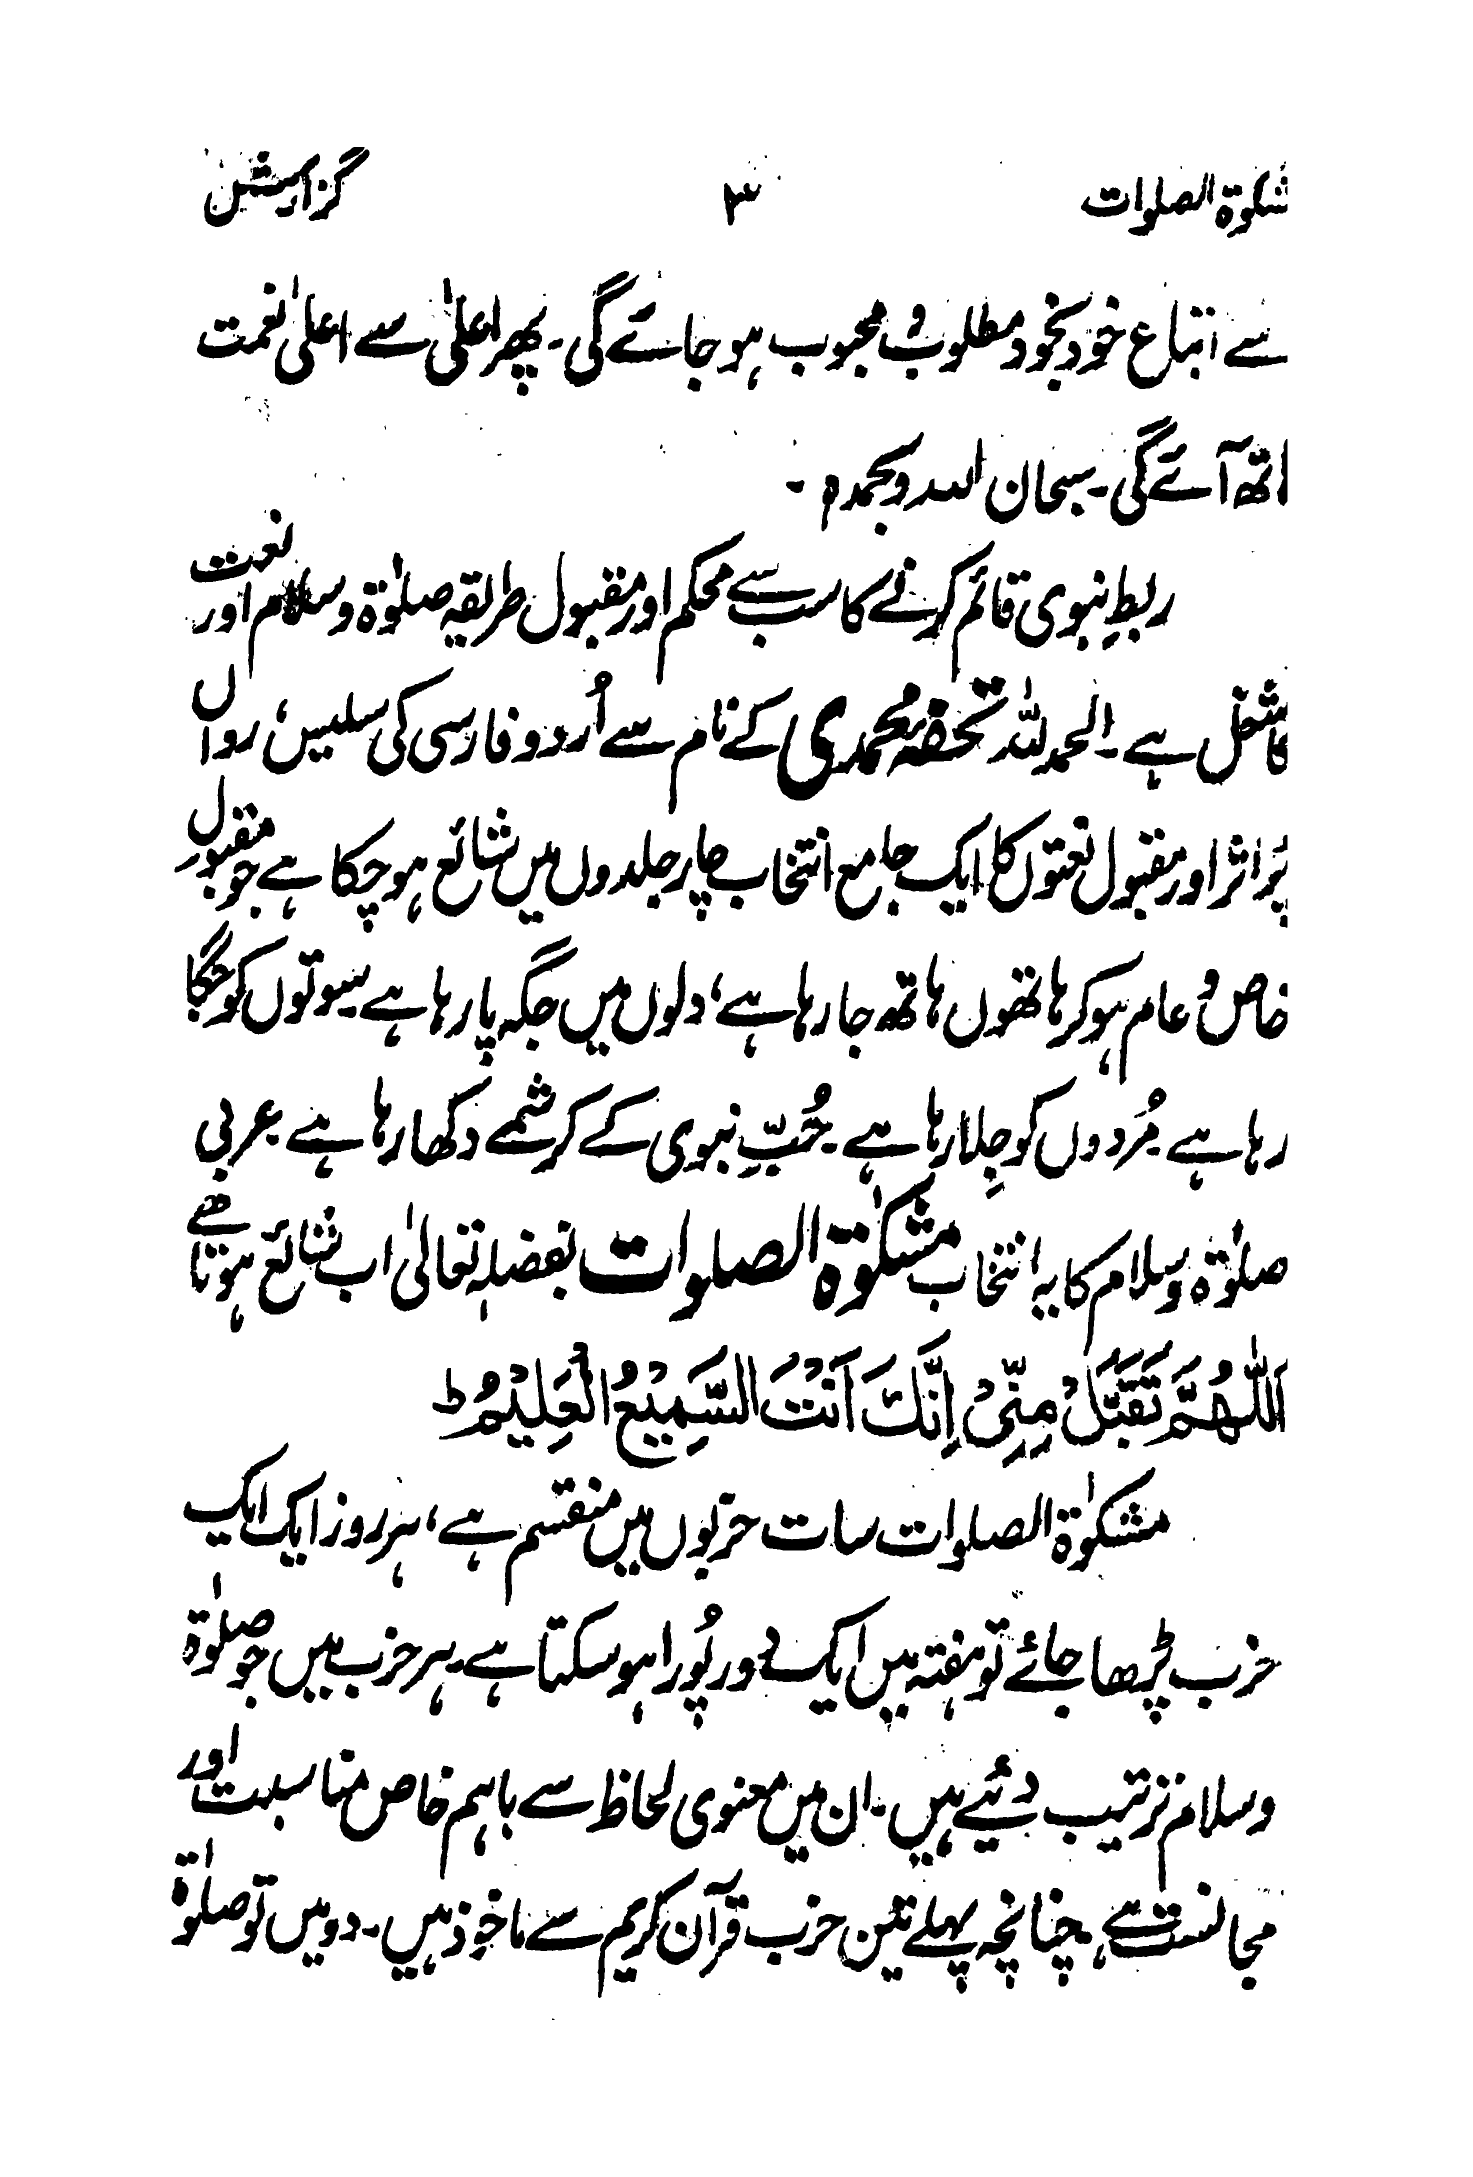 شکوٰۃ الصلوات ۳ گزارش
سے اتباع خود بخود مطلوب و محبوب ہو جائے گی۔ پھر اعلیٰ سے اعلیٰ نعمت
اتھ آئے گی۔ سبحان اللہ و بحمدہ ۔
ربطِ نبوی قائم کرنے کا سب سے محکم اور مقبول طریقہ صلوٰۃ و سلام اور نعت
کا شغل ہے۔ الحمد للّٰہ تحفۂ محمدی کے نام سے اُردو فارسی کی سلیس، رواں
پُر اثر اور مقبول نعتوں کا ایک جامع انتخاب چار جلدوں میں شائع ہو چکا ہے جو مقبول
خاص و عام ہو کر ہاتھوں ہاتھ جا رہا ہے، دلوں میں جگہ پا رہا ہے۔ سوتوں کو جگا
رہا ہے۔ مُردوں کو جِلا رہا ہے۔ حُبِّ نبوی کے کرشمے دکھا رہا ہے۔ عربی
صلوٰۃ و سلام کا یہ انتخاب مشکوٰۃ الصلوات بفضلہٖ تعالیٰ اب شائع ہوتا ہے
اَللّٰهُمَّ تَقَبَّلْ مِنِّیْ اِنَّكَ اَنْتَ السَّمِیْعُ الْعَلِیْمُ ط
مشکوٰۃ الصلوات سات حزبوں میں منقسم ہے، ہر روز ایک ایک
حزب پڑھا جائے تو ہفتہ میں ایک دور پُورا ہو سکتا ہے۔ ہر حزب میں جو صلوٰۃ
و سلام ترتیب دئیے ہیں۔ ان میں معنوی لحاظ سے باہم خاص مناسبت اور
مجانست ہے۔ چنانچہ پہلے تین حزب قرآن کریم سے ماخوذ ہیں۔ دو میں تو صلوٰۃ